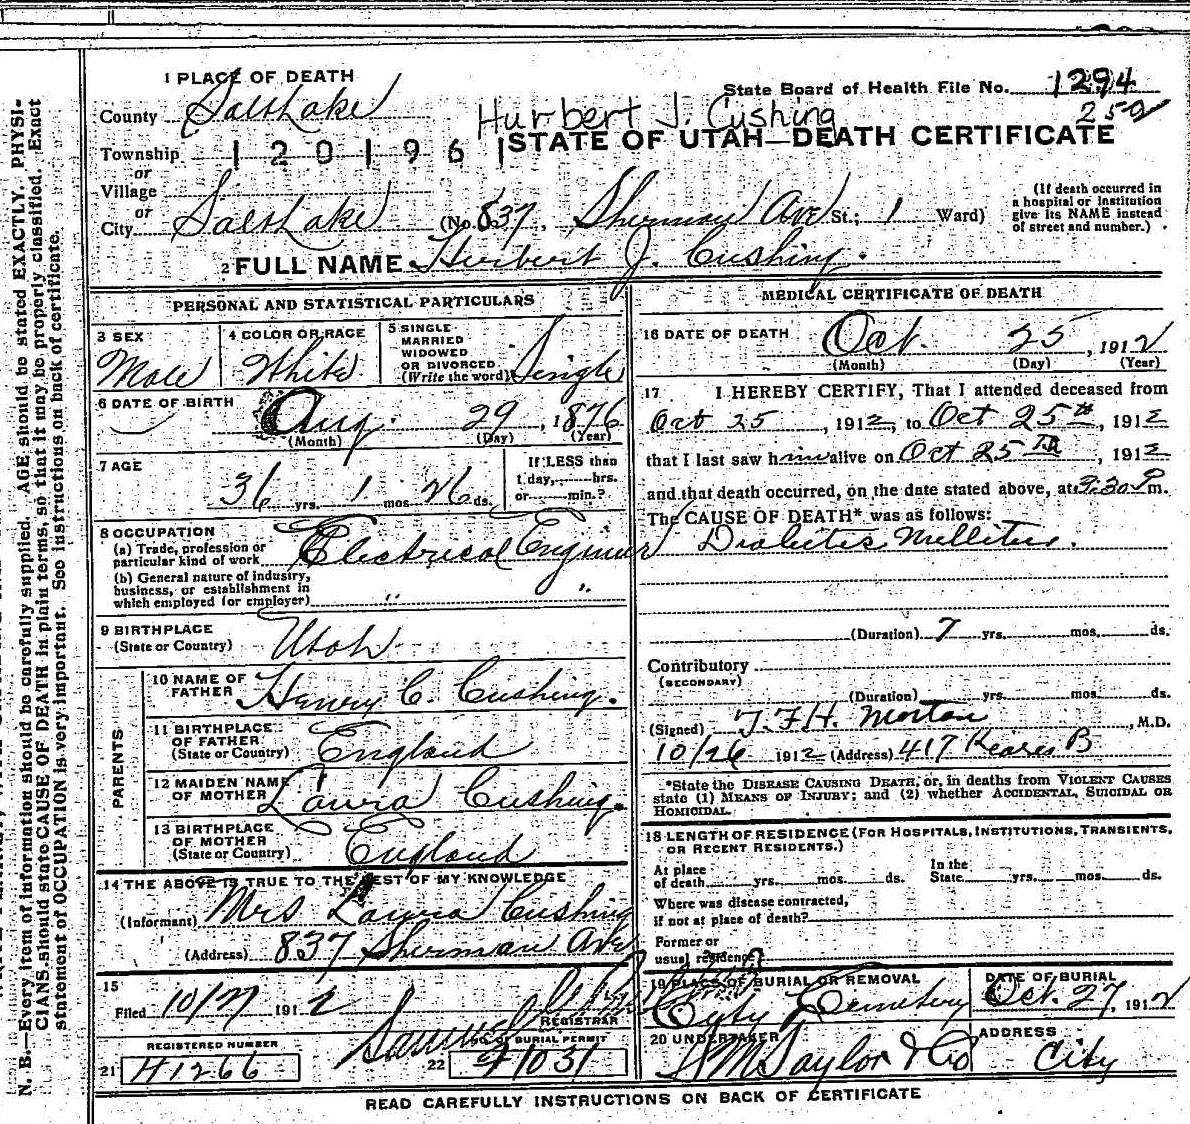 1 PLACE OF DEATH
State Board of Health File No. 1294
County Salt Lake
Hurbert J. Cushing
252
STATE OF UTAH—DEATH CERTIFICATE
Township 1 2 0 1 9 6 1
or
Village
or
City Salt Lake (No. 837, Sherman Ave St.; 1 Ward)
(If death occurred in a hospital or institution give its NAME instead of street and number.)
2 FULL NAME Herbert J. Cushing.
PERSONAL AND STATISTICAL PARTICULARS
3 SEX
Male
4 COLOR OR RACE
White
5 SINGLE
MARRIED
WIDOWED
OR DIVORCED
(Write the word) Single
6 DATE OF BIRTH
Aug. 29, 1876
(Month) (Day) (Year)
7 AGE
36 yrs. 1 mos. 26 ds.
If LESS than
1 day, hrs.
or min.?
8 OCCUPATION
(a) Trade, profession or
particular kind of work Electrical Engineer
(b) General nature of industry,
business, or establishment in
which employed (or employer) " "
9 BIRTHPLACE
(State or Country) Utah
PARENTS
10 NAME OF
FATHER Henry C. Cushing.
11 BIRTHPLACE
OF FATHER
(State or Country) England
12 MAIDEN NAME
OF MOTHER Laura Cushing.
13 BIRTHPLACE
OF MOTHER
(State or Country) England
14 THE ABOVE IS TRUE TO THE BEST OF MY KNOWLEDGE
(Informant) Mrs Laura Cushing
(Address) 837 Sherman Ave
15
Filed 10/27 1912
REGISTRAR
REGISTERED NUMBER
21 H1266
NO. OF BURIAL PERMIT
22 H1031
MEDICAL CERTIFICATE OF DEATH
16 DATE OF DEATH Oct. 25, 1912
(Month) (Day) (Year)
17 I HEREBY CERTIFY, That I attended deceased from
Oct 25, 1912, to Oct 25th, 1912
that I last saw him alive on Oct 25th, 1912
and that death occurred, on the date stated above, at 9:30 P m.
The CAUSE OF DEATH* was as follows:
Diabetis Mellitus.
(Duration) 7 yrs. mos. ds.
Contributory
(SECONDARY)
(Duration) yrs. mos. ds.
(Signed) T.F.H. Morton, M.D.
10/26 1912 (Address) 417 Kearns B
*State the DISEASE CAUSING DEATH, or, in deaths from VIOLENT CAUSES
state (1) MEANS OF INJURY; and (2) whether ACCIDENTAL, SUICIDAL OR
HOMICIDAL.
18 LENGTH OF RESIDENCE (FOR HOSPITALS, INSTITUTIONS, TRANSIENTS,
OR RECENT RESIDENTS.)
At place
of death yrs. mos. ds.
In the
State yrs. mos. ds.
Where was disease contracted,
if not at place of death?
Former or
usual residence?
19 PLACE OF BURIAL OR REMOVAL
City Cemetery
DATE OF BURIAL
Oct. 27, 1912
20 UNDERTAKER
S M Taylor & Co
ADDRESS
City
READ CAREFULLY INSTRUCTIONS ON BACK OF CERTIFICATE
N. B.—Every item of information should be carefully supplied. AGE should be stated EXACTLY. PHYSI-
CIANS should state CAUSE OF DEATH in plain terms, so that it may be properly classified. Exact
statement of OCCUPATION is very important. See instructions on back of certificate.